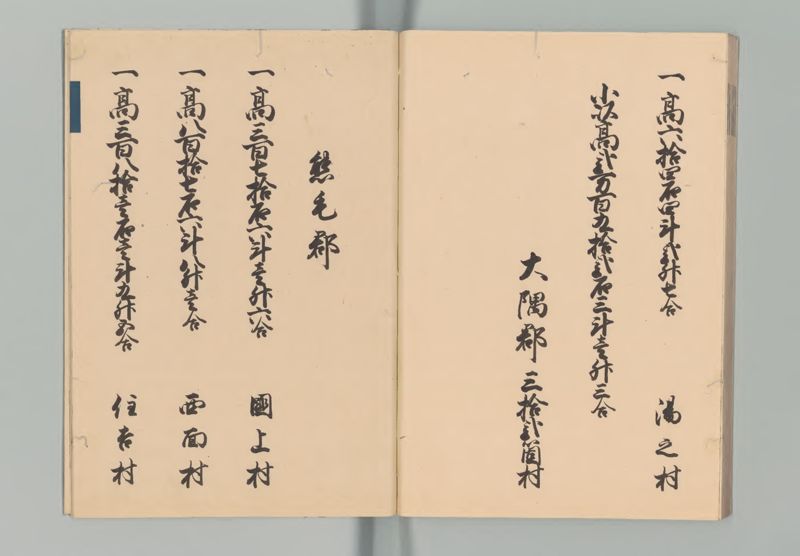 一高六拾四石四斗弐升七合 湯之村
小以高弐万百五拾弐石三斗壱升三合
大隅郡三拾弐箇村
熊毛郡
一高三百七拾石六斗壱升六合 國上村
一高八百拾七石六斗八升壱合 西面村
一高三百八拾壱石壱斗九升五合 住吉村